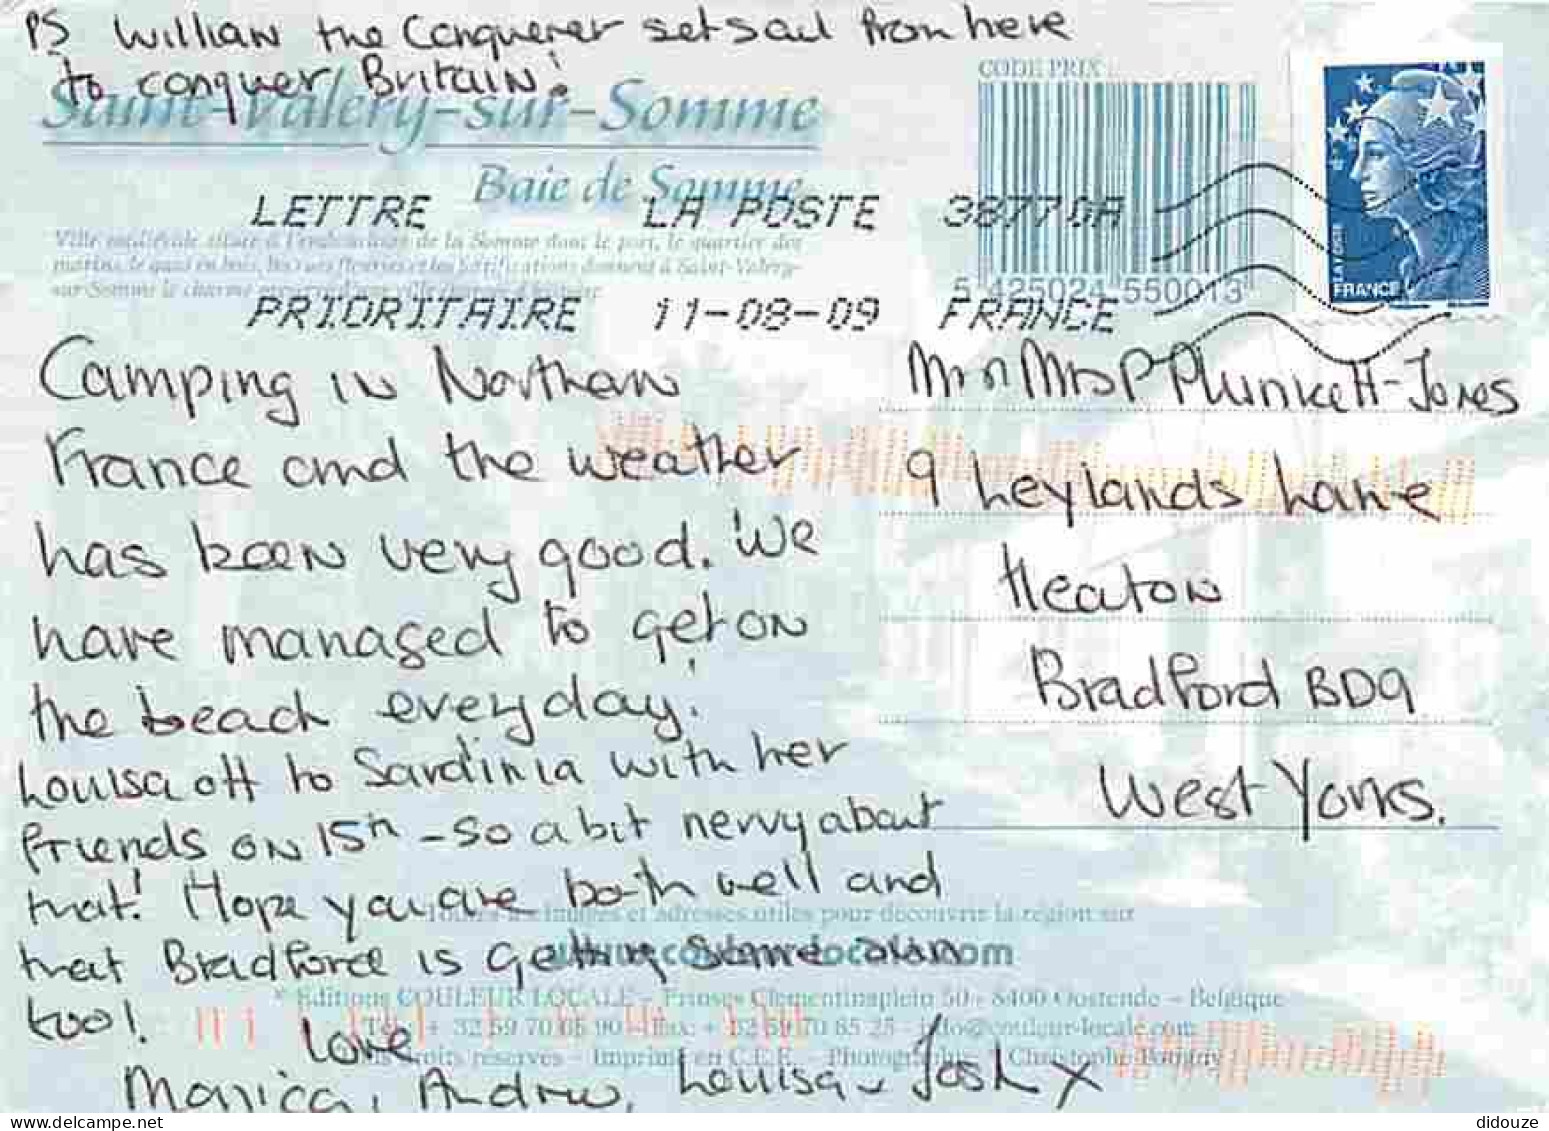 PS William the Conquerer set sail from here
to conquer Britain!
Saint-Valery-sur-Somme
Baie de Somme
CODE PRIX
LETTRE LA POSTE 38770A
PRIORITAIRE 11-08-09 FRANCE
Ville médiévale située à l'embouchure de la Somme dont le port, le quartier des
marins, le quai en bois, les rues fleuries et les fortifications donnent à Saint-Valery-
sur-Somme le charme
5 425024 550013
LA POSTE
FRANCE
Camping in Northern
France and the weather
has been very good. We
have managed to get on
the beach everyday!
Louisa off to Sardinia with her
friends on 15th - so a bit nervy about
that! Hope you are both well and
that Bradford is getting some sun
too!
Love
Monica, Andrew, Louisa & Josh x
Mr n Mrs P Plunkett-Jones
9 Leylands Lane
Heaton
Bradford BD9
West Yorks.
Toutes les images et adresses utiles pour découvrir la région sur
www.couleur-locale.com
© Editions COULEUR LOCALE - Prinses Clementinaplein 50 - 8400 Oostende - Belgique
Tél.: + 32 59 70 65 90 - Fax: + 32 59 70 65 25 - info@couleur-locale.com
droits réservés - Imprimé en C.E.E. - Photographie: Christophe
didouze